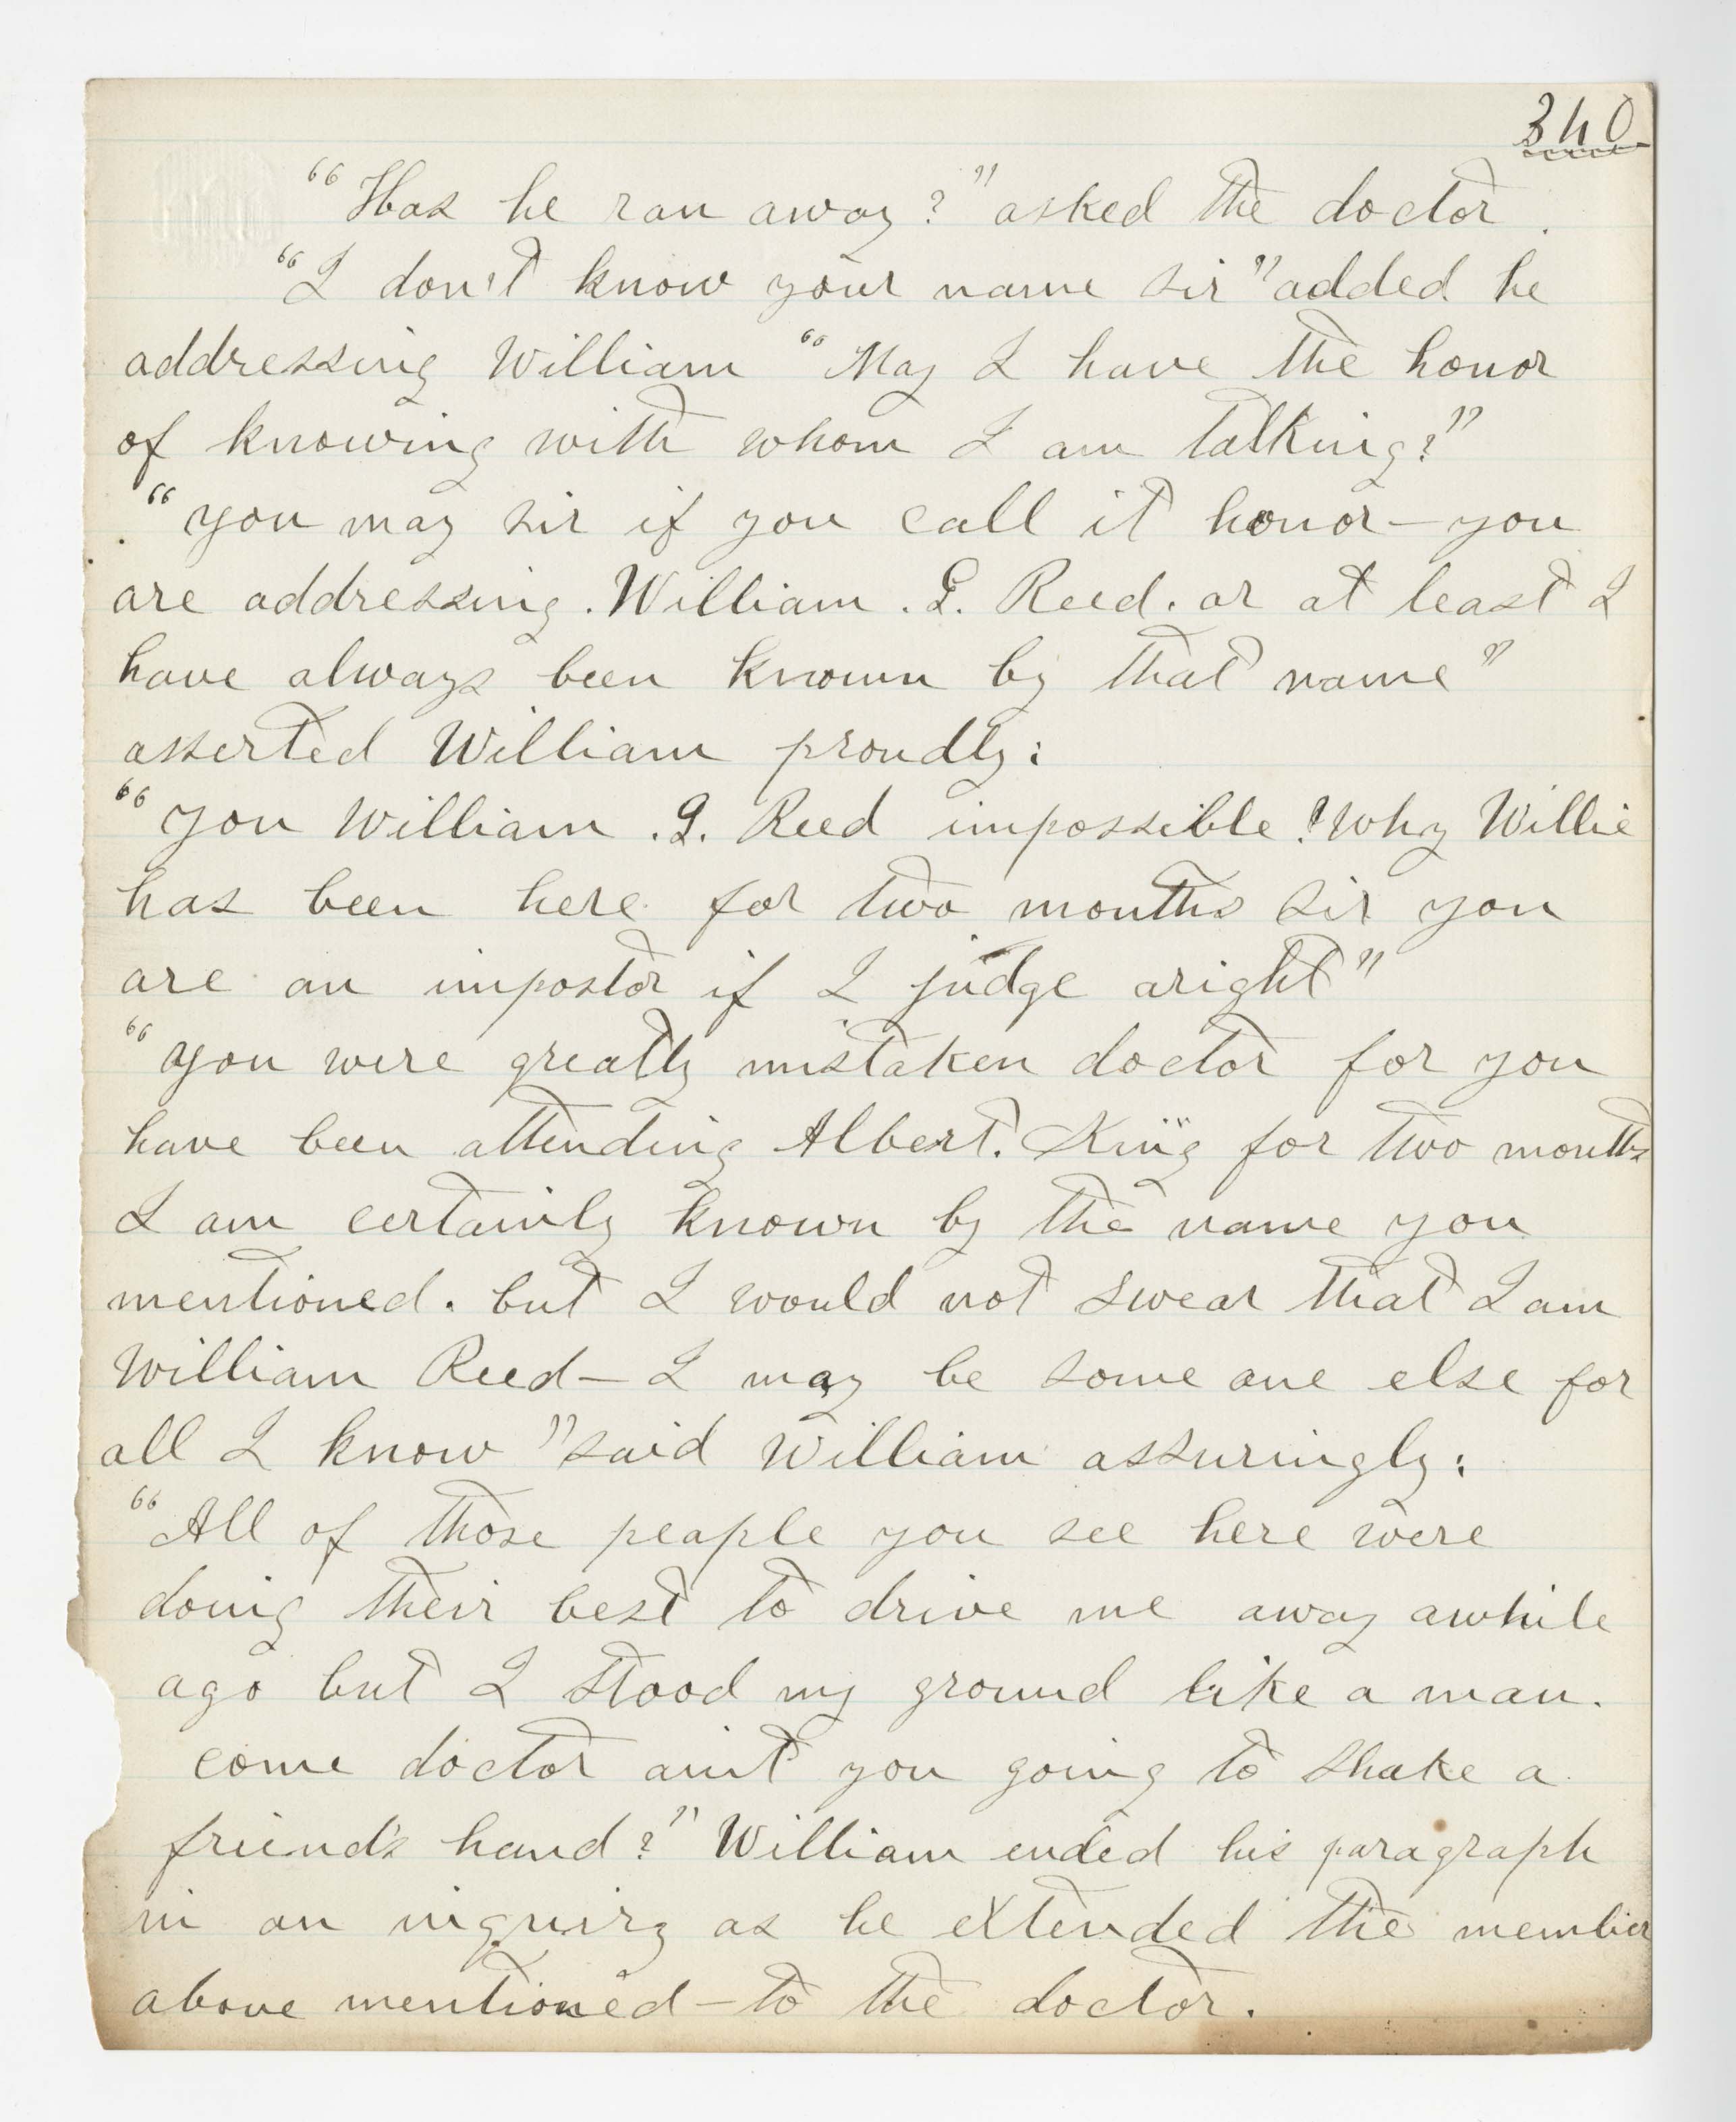 340
"Has he ran away?" asked the doctor.
"I don't know your name sir" added he
addressing William "May I have the honor
of knowing with whom I am talking?"
"you may sir if you call it honor—you
are addressing. William. I. Reed. or at least I
have always been known by that name"
asserted William proudly:
"you William. I. Reed impossible! Why Willie
has been here for two months sir you
are an impostor if I judge aright"
"you were greatly mistaken doctor for you
have been attending Albert. King for two months
I am certainly known by the name you
mentioned. but I would not swear that I am
William Reed—I may be some one else for
all I know" said William assuringly:
"All of those people you see here were
doing their best to drive me away awhile
ago but I stood my ground like a man.
come doctor ain't you going to shake a
friend's hand?" William ended his paragraph
in an inquiry as he extended the member
above mentioned—to the doctor.